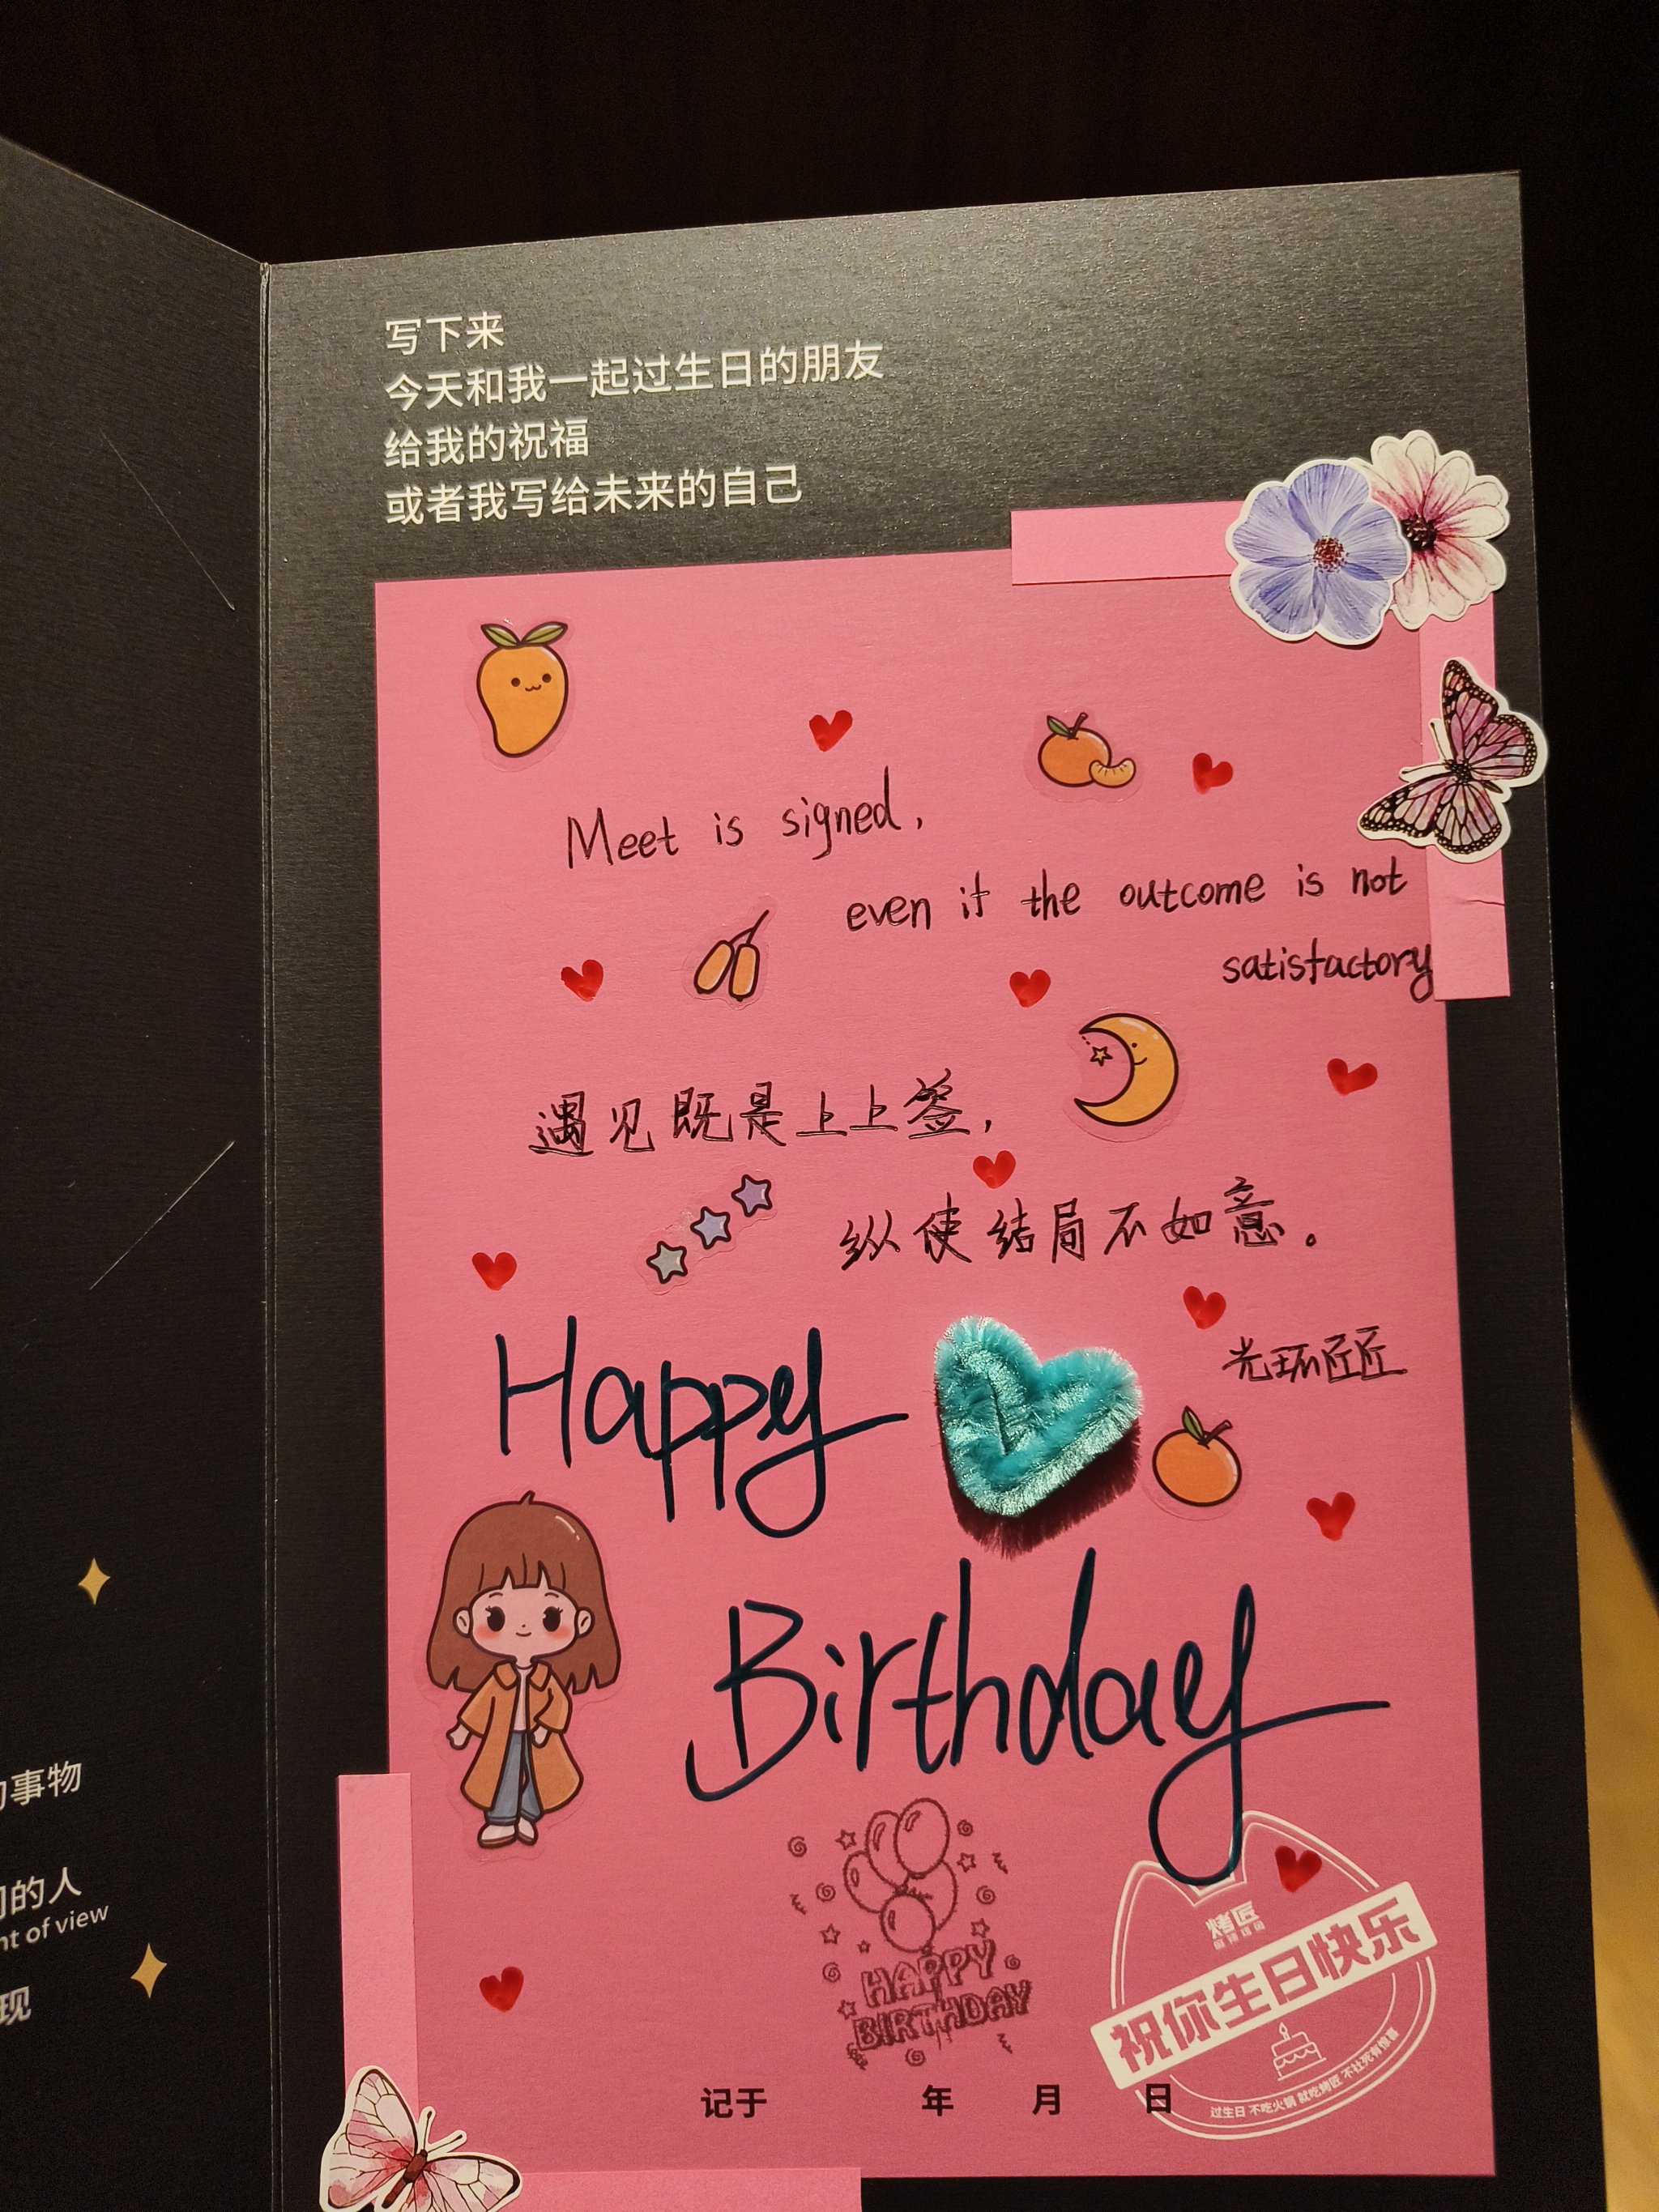 写下来
今天和我一起过生日的朋友
给我的祝福
或者我写给未来的自己
Meet is signed,
even if the outcome is not
satisfactory
遇见既是上上签,
纵使结局不如意。
光环匠匠
Happy
Birthday
HAPPY
BIRTHDAY
烤匠
麻辣烤鱼
祝你生日快乐
过生日 不吃火锅 就吃烤匠 不社死有惊喜
记于 年 月 日
事物
的人
nt of view
现